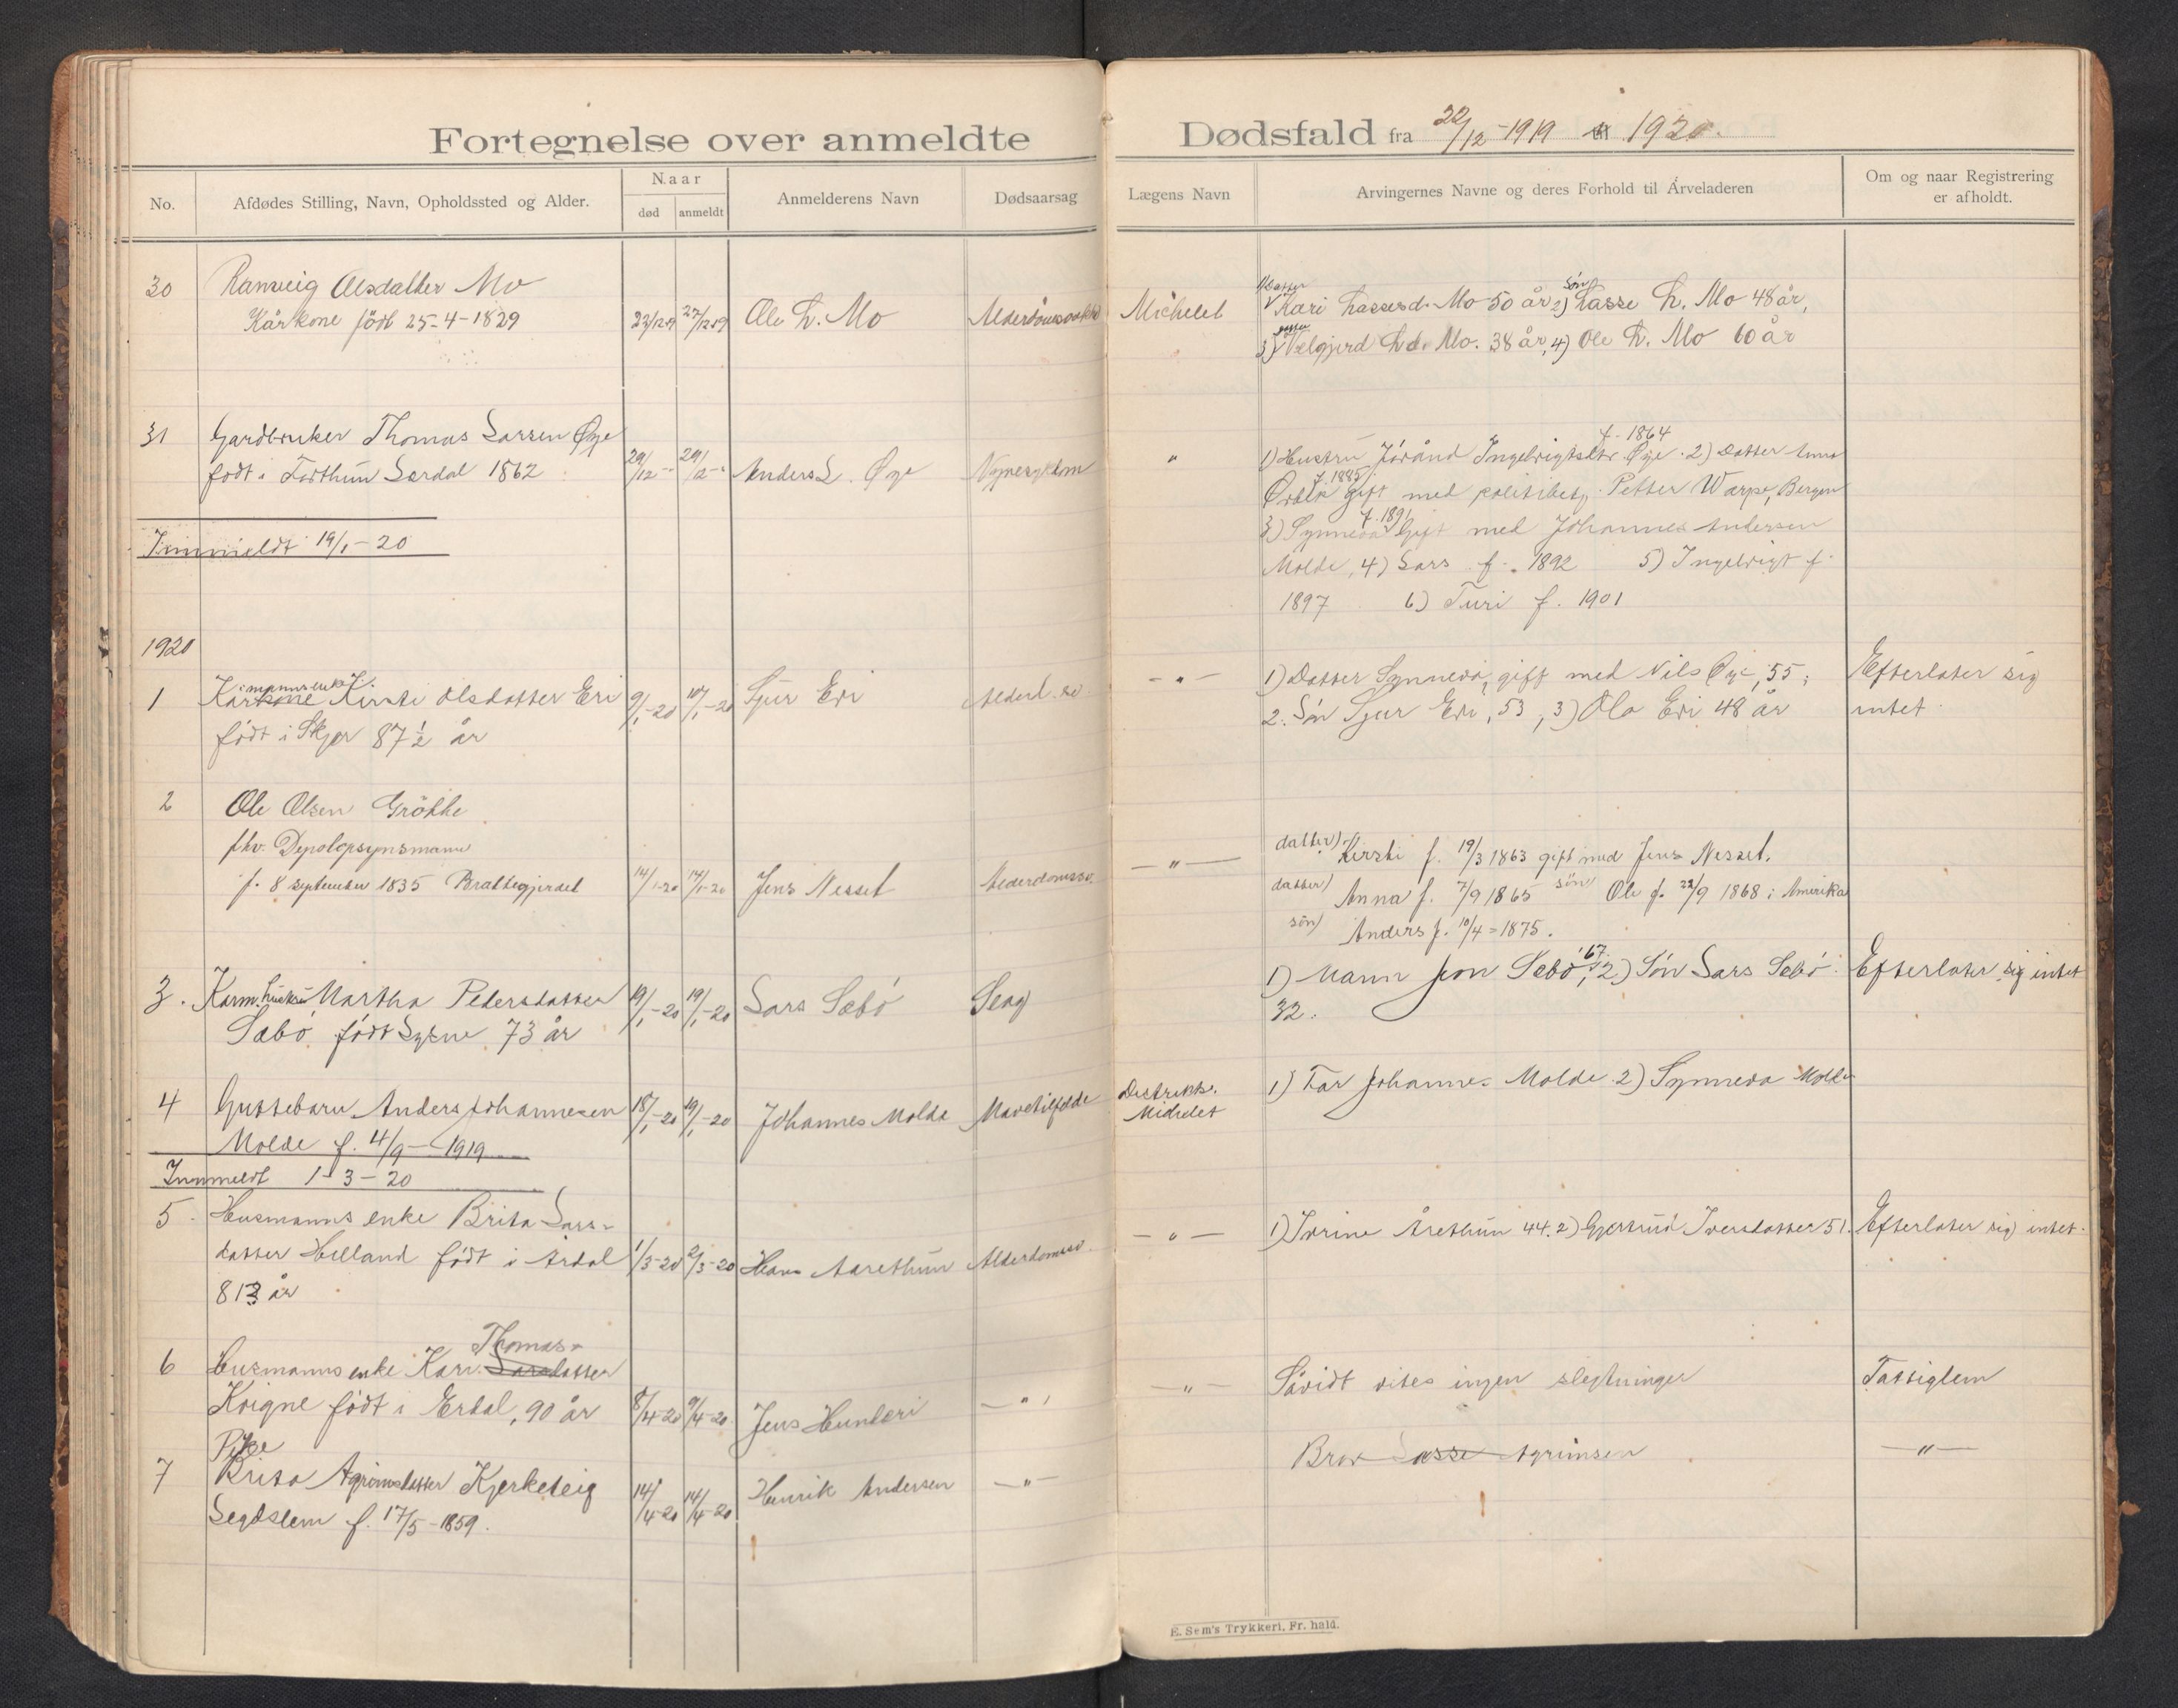 Fortegnelse over anmeldte Dødsfald fra 22/12-1919 til 1920.
No.
Afdødes Stilling, Navn, Opholdssted og Alder.
Naar
død
anmeldt
Anmelderens Navn
Dødsaarsag
Lægens Navn
Arvingernes Navne og deres Forhold til Arveladeren
Om og naar Registrering
er afholdt.
30
Ranveig Olsdatter Mo
Kårkone født 25-4-1829
Ole L. Mo
Michelet
1) Datter Kari Lassesd. Mo 50 år 2) Søn Lasse L. Mo 48 år,
3) Velgjerd L.d. Mo. 38 år, 4) Ole L. Mo 60 år
31
Gardbruker Thomas Larsen Øye
født i Lærdal 1862
29/12
29/12
Anders L. Øye
Nyresykdom
"
1) Hustru Jórånd Ingebrigtsdtr Øye f. 1864. 2) Datter Anna
f. 1885 gift med politibetj. Petter Warpe, Bergen
3) Synneva f. 1891 Gift med Johannes Andersen
Molde, 4) Lars f. 1892 5) Ingebrigt f.
1897 6) Turi f. 1901
Innmeldt 19/1-20
1920
1
Kårmannsenke Kirsti Olsdatter Eri
født i Skjør 87 1/2 år
9/1-20
10/1-20
Sjur Eri
Alderd.sv.
- " -
1) Datter Synneva, gift med Nils Øye, 55,
2. Søn Sjur Eri, 53, 3) Ola Eri 48 år
Efterlater sig
intet.
2
Ole Olsen Gröthe
fhv. Depotopsynsmann
f. 8 september 1835 Brattegjerdet
14/1-20
14/1-20
Jens Nesset
Alderdomssv.
- " -
datter) Kirsti f. 19/3 1863 gift med Jens Nesset.
datter) Anna f. 7/9 1865 søn Ole f. 22/9 1868 i Amerika
søn) Anders f. 10/4-1875.
3.
Karm. hustru Martha Pedersdatter
Sæbó, født Lysne 73 år
19/1-20
19/1-20
Lars Sæbó
Slag
1) Mann Jon Sebó, 67, 2) Søn Lars Sebó
32.
Efterlater sig intet
4
Guttebarn Anders Johannesen
Molde f. 4/9-1919
18/1-20
19/1-20
Johannes Molde
Distrikts.
Michelet
1) Far Johannes Molde 2) Synneva Molde
Innmeldt 1-3-20
5
Husmanns enke Brita Lars-
datter Helland født i Årdal
år
1/3-20
2/3-20
Hans Aarethun
Alderdomssv.
- " -
1) Ivrine Årethun 44. 2) Gjertrud Iversdatter 51.
Efterlater sig intet.
6
Husmanns enke Kari Thomas-
datter
Kvigne født i Erdal, 90 år
8/4-20
9/4-20
Jens Hunderi
- " -
- " -
Såvidt vites ingen slegtninger
Fattiglem
7
Pike
Brita Agrimsdatter Kjerketeig
Legdslem f. 17/5-1859.
14/4-20
14/4-20
Henrik Andersen
- " -
Bror Lasse Agrimsen
- " -
E. Sem's Trykkeri, Fr. hald.